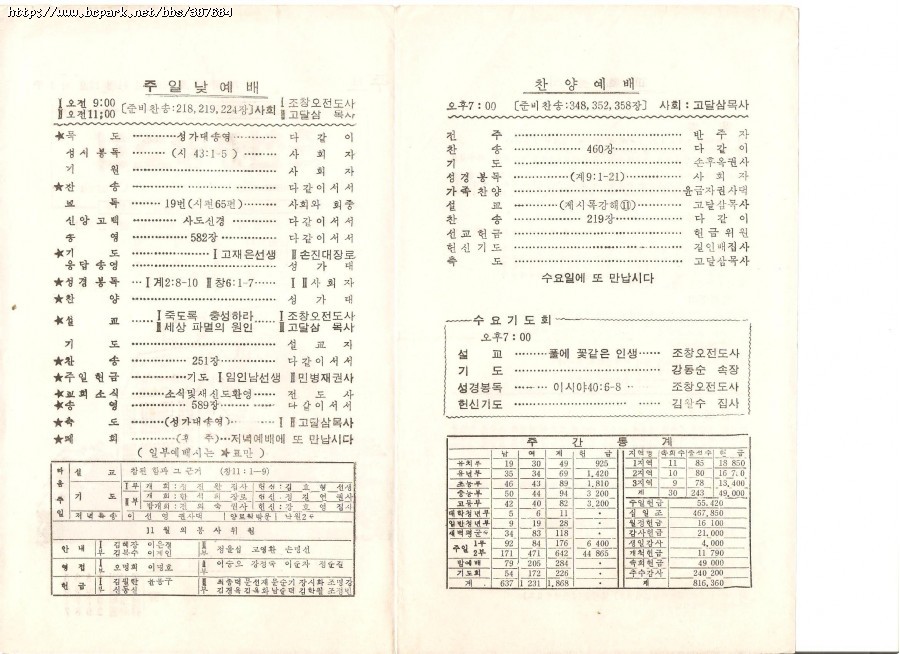 https://www.bcpark.net/bbs/387684
주일낮예배
Ⅰ오전 9:00 [준비찬송:218,219,224장] 사회 Ⅰ조창오전도사
Ⅱ오전11:00 Ⅱ고달삼 목사
★묵 도 성가대송영 다 같 이
성시봉독 (시 43:1-5) 사 회 자
기 원 사 회 자
★찬 송 다같이서서
교 독 19번(시편65편) 사회와 회중
신앙고백 사도신경 다같이서서
송 영 582장 다같이서서
★기 도 Ⅰ고재은선생 Ⅱ손진대장로
응답송영 성 가 대
★성경봉독 Ⅰ계2:8-10 Ⅱ창6:1-7 ⅠⅡ사회자
★찬 양 성 가 대
★설 교 Ⅰ죽도록 충성하라 Ⅰ조창오전도사
Ⅱ세상 파멸의 원인 Ⅱ고달삼 목사
기 도 설 교 자
★찬 송 251장 다같이서서
★주일헌금 기도 Ⅰ임인남선생 Ⅱ민병재권사
★교회소식 소식및새신도환영 전 도 사
★송 영 589장 다같이서서
★축 도 (성가대송영) Ⅰ Ⅱ고달삼목사
★폐 회 (후 주) 저녁예배에 또 만납시다
(일부예배시는 ★표만)
다음주일
설 교 참된 힘과 그 근거 (창11:1-9)
기 도 Ⅰ부
Ⅱ부
저녁특송
11월의 봉사위원
안 내 Ⅰ부 Ⅱ부
영 접 Ⅰ부 오명희 이명호 Ⅱ부
헌 금 Ⅰ부 Ⅱ부
찬양예배
오후7:00 [준비찬송:348,352,358장] 사회:고달삼목사
전 주 반 주 자
찬 송 460장 다 같 이
기 도 손후옥권사
성경봉독 (계9:1-21) 사 회 자
가족찬양 윤금자권사댁
설 교 (계시록강해⑪) 고달삼목사
찬 송 219장 다 같 이
선교헌금 헌금위원
헌신기도 길인배집사
축 도 고달삼목사
수요일에 또 만납시다
수요기도회
오후7:00
설 교 풀에 꽃같은 인생 조창오전도사
기 도 강동순 속장
성경봉독 이시야40:6-8 조창오전도사
헌신기도 김활수 집사
주 간 통 계
남 여 계 헌 금 지역명 속회수 출석수 헌 금
유치부 19 30 49 925 1지역 11 85 18 850
유년부 35 34 69 1,420 2지역 10 80
초등부 46 43 89 1,810 3지역 9 78 13,400
중등부 50 44 94 3 200 계 30 243 49,000
고등부 42 40 82 3,200 주일헌금 55,420
대학청년부 5 6 11 • 십일조 467,850
일반청년부 9 19 28 • 월정헌금 16 100
새벽평균 34 83 118 • 감사헌금 21,000
주일 1부 92 84 176 6 400 생일감사 4,000
2부 171 471 642 44 865 개척헌금 11 790
밤예배 79 205 284 • 속회헌금 49 000
기도회 54 172 226 • 추수감사 240 200
계 637 1,231 1,868 • 계 816,360